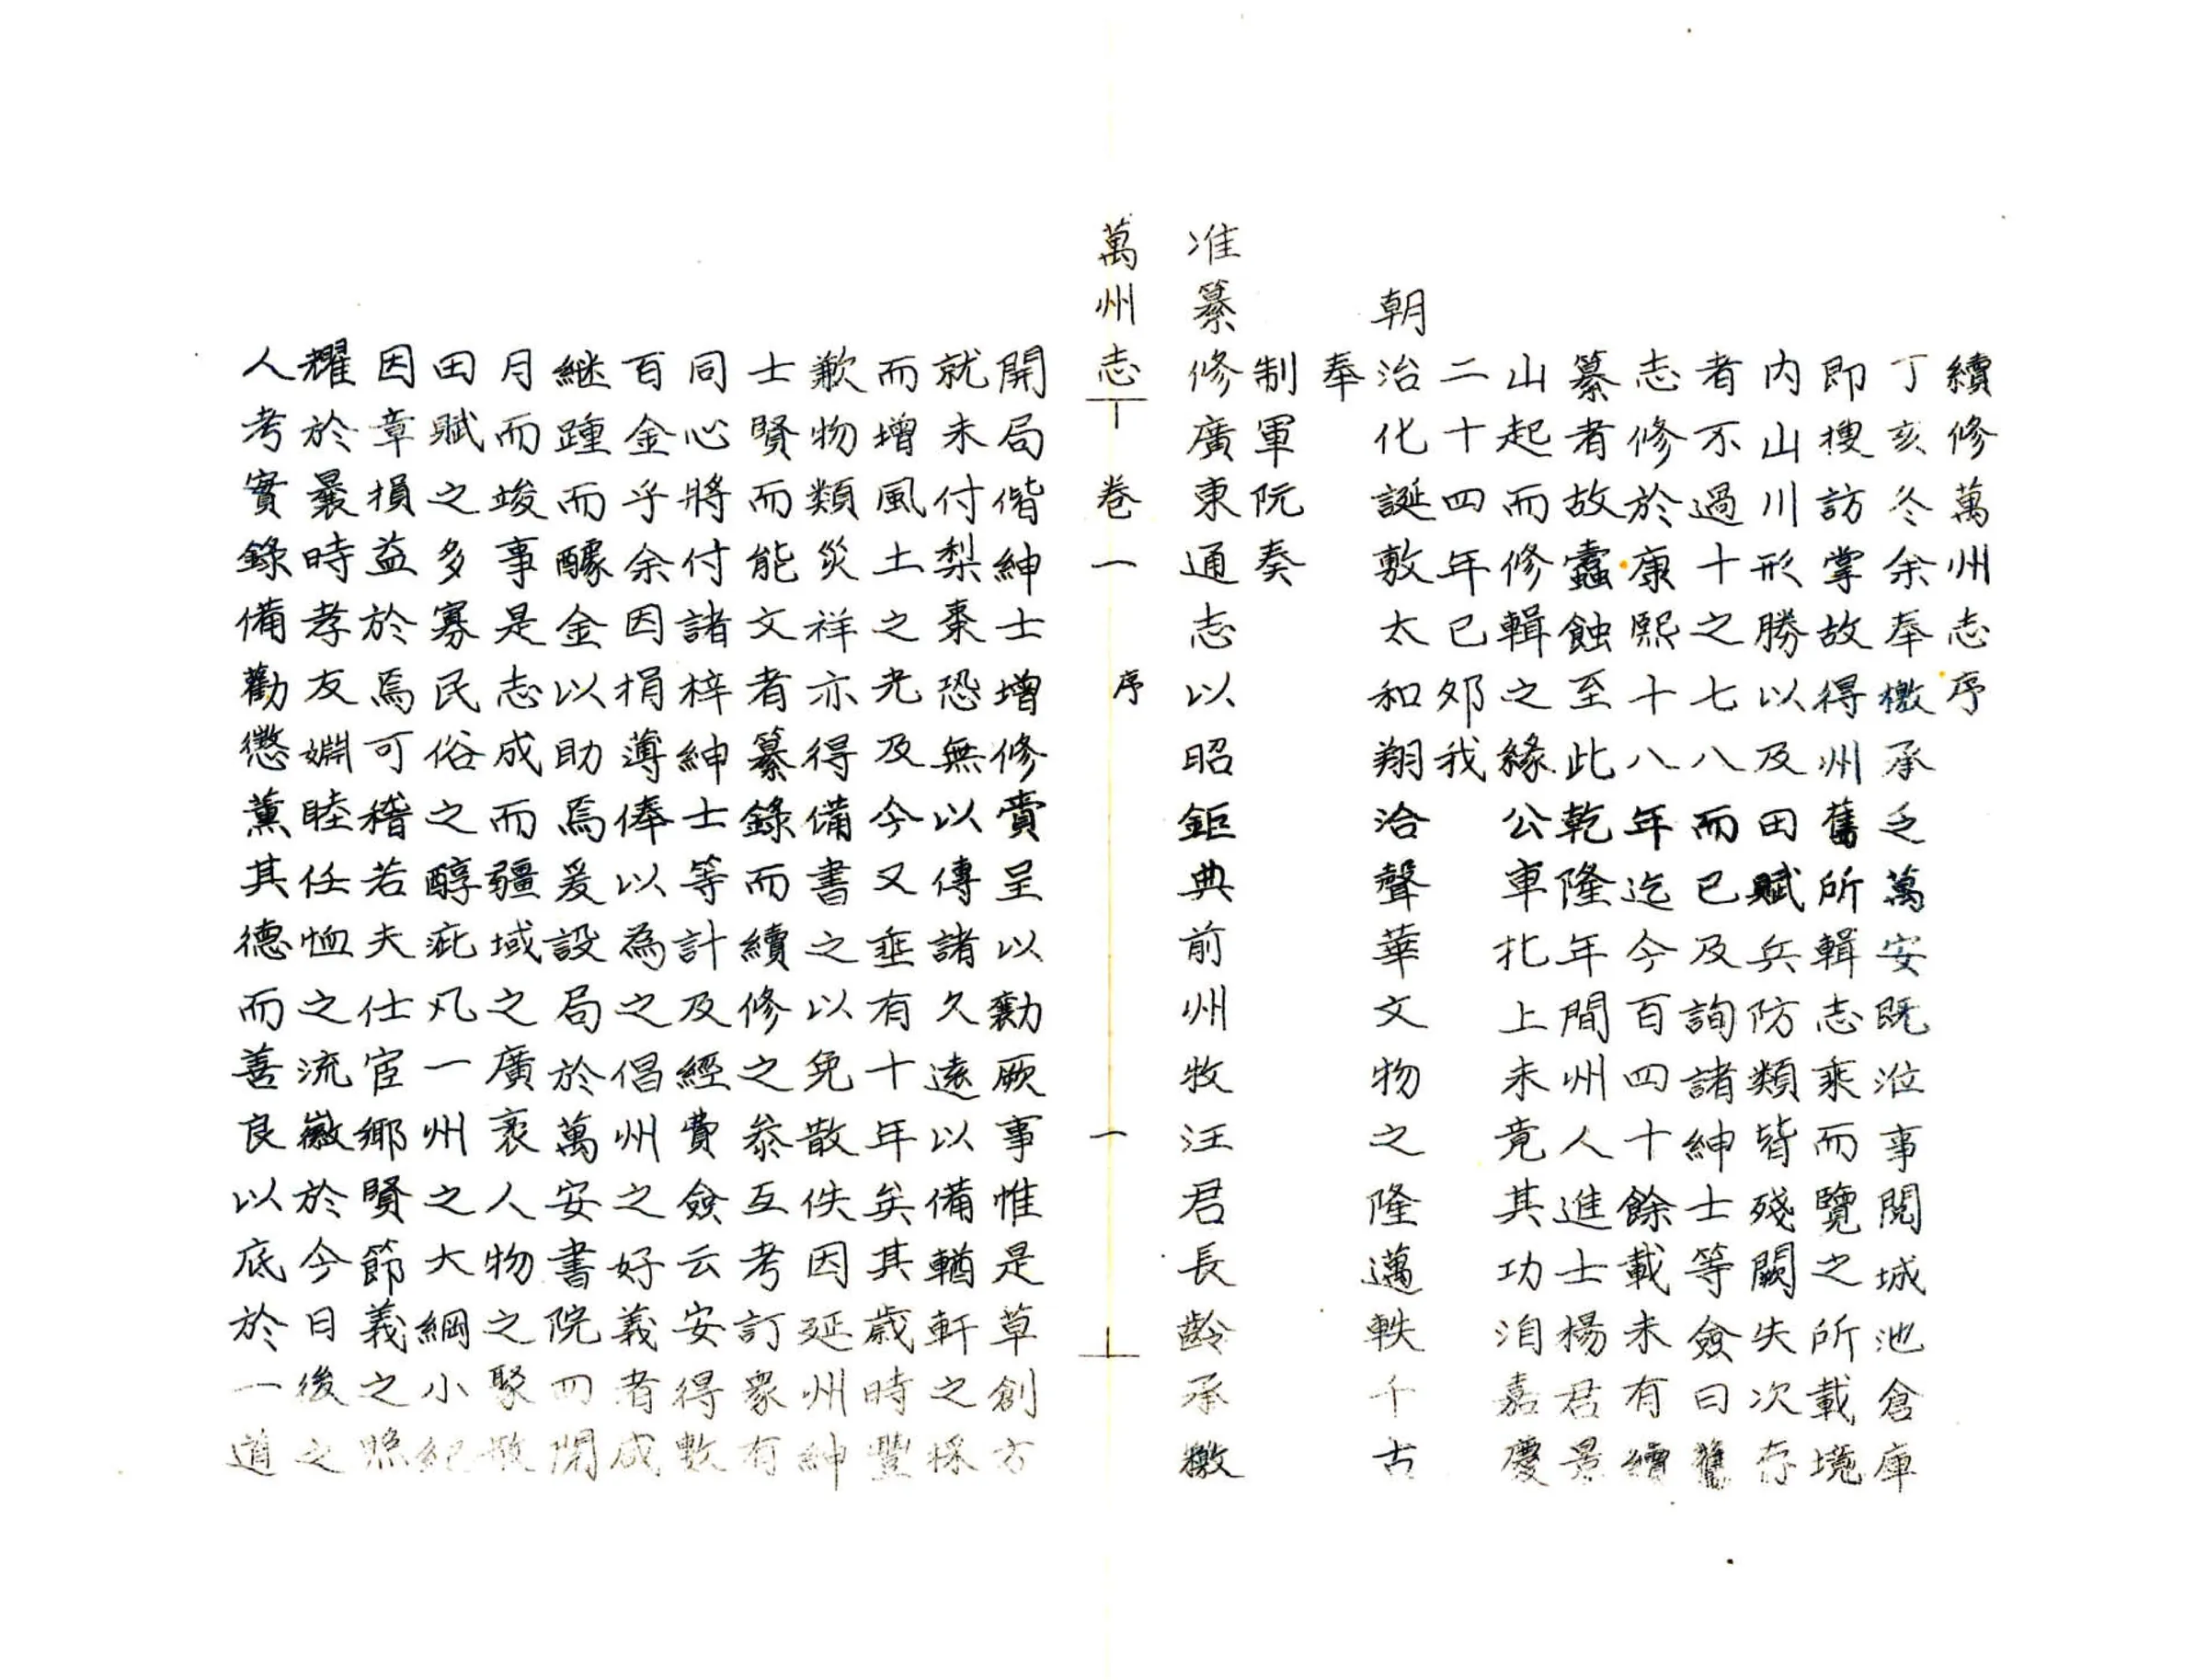 續修萬州志序
丁亥冬余奉檄承乏萬安既涖事閱城池倉庫
即搜訪掌故得州舊所輯志乘而覽之所載境
內山川形勝以及田賦兵防類皆殘闕失次存
者不過十之七八而已及詢諸紳士等僉曰舊
志修於康熙十八年迄今百四十餘載未有續
纂者故蠹蝕至此乾隆年間州人進士楊君景
山起而修輯之緣公車北上未竟其功洎嘉慶
二十四年己卯我
朝治化誕敷太和翔洽聲華文物之隆邁軼千古
奉
制軍阮奏
准纂修廣東通志以昭鉅典前州牧汪君長齡承檄
萬州志 卷一 序 一
開局偕紳士增修賚呈以勷厥事惟是草創方
就未付梨棗恐無以傳諸久遠以備輶軒之採
而增風土之光及今又垂有十年矣其歲時豐
歉物類災祥亦得備書之以免散佚因延州紳
士賢而能文者纂錄而續修之叅互考訂衆有
同心將付諸梓紳士等計及經費僉云安得數
百金乎余因捐薄俸以為之倡州之好義者咸
継踵而醵金以助焉爰設局於萬安書院四閱
月而竣事是志成而疆域之廣袤人物之聚散
田賦之多寡民俗之醇疵凡一州之大綱小紀
因章損益於焉可稽若夫仕宦鄉賢節義之照
耀於曩時孝友婣睦任恤之流徽於今日後之
人考實錄備勸懲薰其德而善良以底於一道